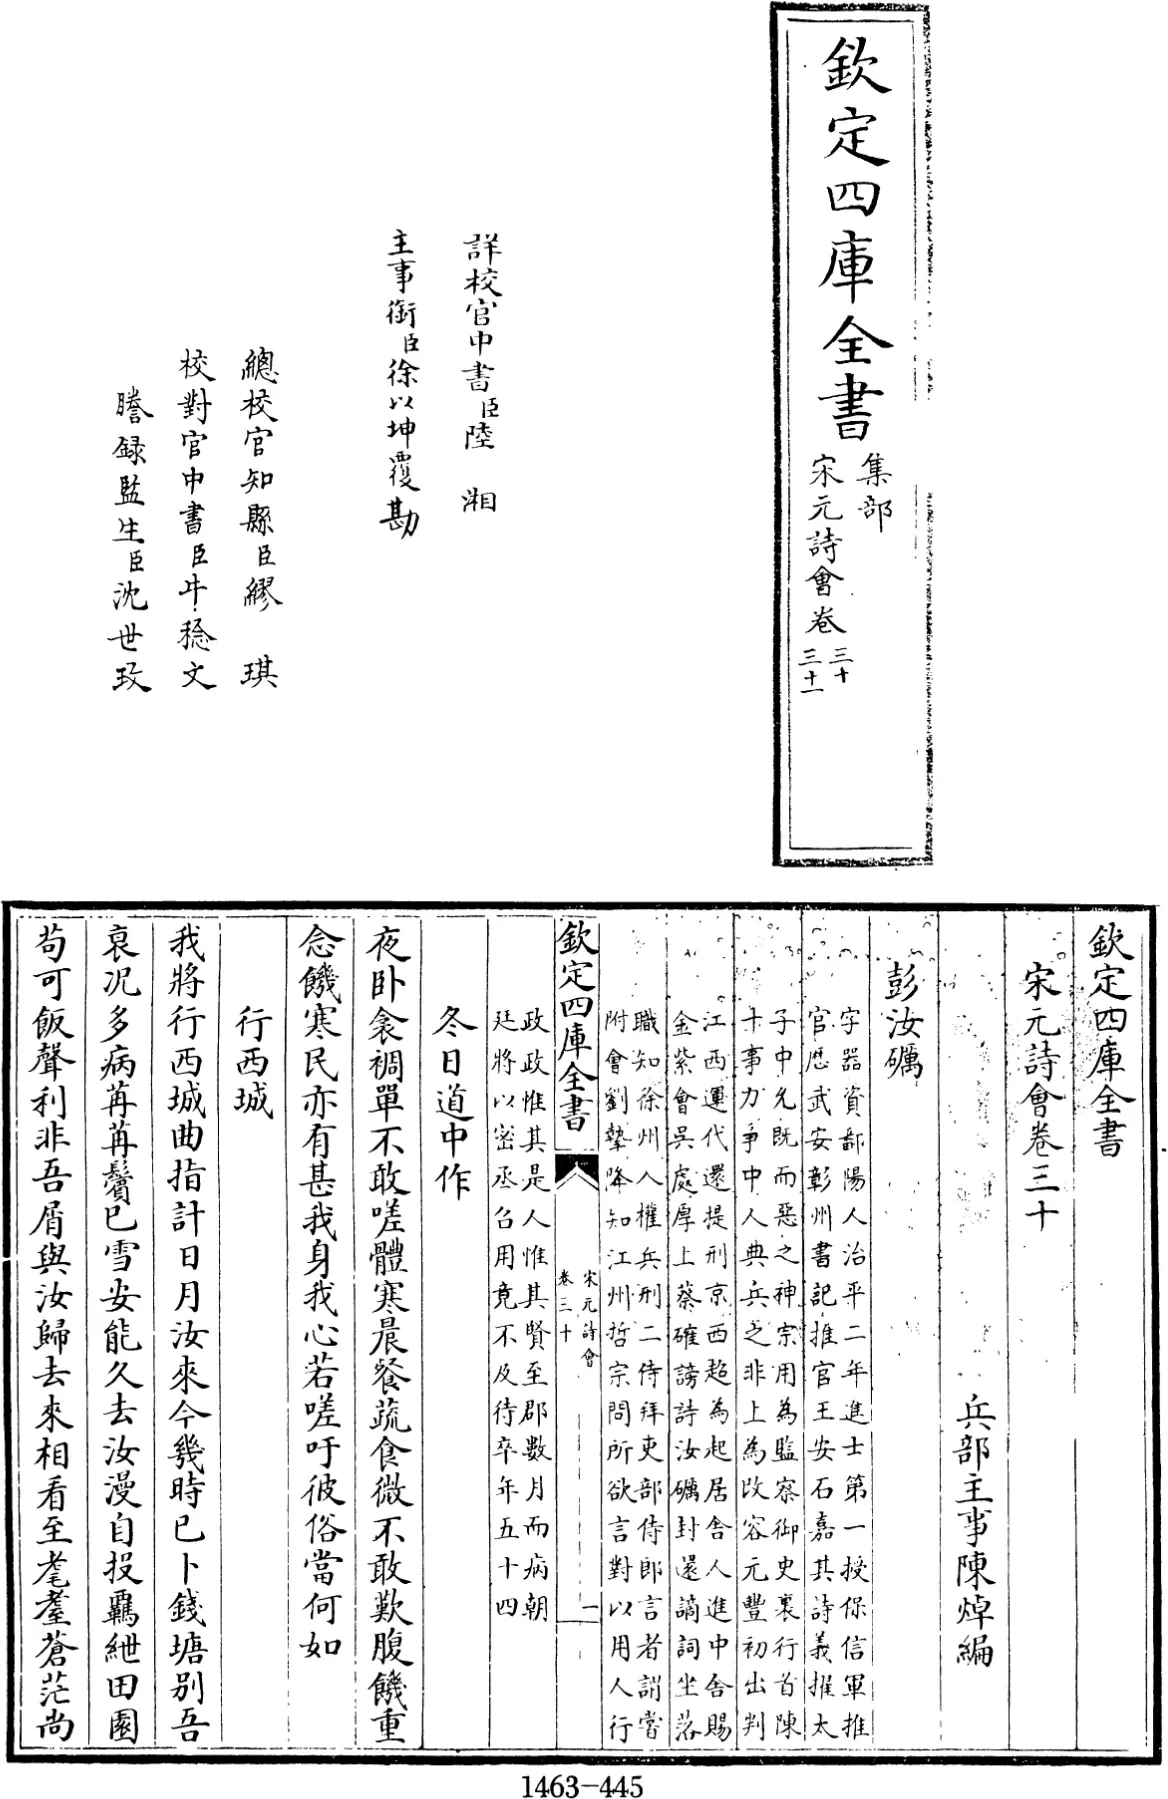 欽定四庫全書
集部
宋元詩會卷
三十
三十一
詳校官中書臣陸湘
主事銜臣徐以坤覆勘
總校官知縣臣繆琪
校對官中書臣牛稔文
謄録監生臣沈世玫
欽定四庫全書
宋元詩會卷三十
兵部主事陳焯編
彭汝礪
字器資鄱陽人治平二年進士第一授保信軍推
官歴武安彰州書記推官王安石嘉其詩義擢太
子中允既而惡之神宗用為監察御史裏行首陳
十事力爭中人典兵之非上為改容元豐初出判
江西運代還提刑京西超為起居舍人進中舍賜
金紫會吳處厚上蔡確謗詩汝礪封還謫詞坐落
職知徐州人權兵刑二侍拜吏部侍郎言者謂嘗
附會劉摯降知江州哲宗問所欲言對以用人行
欽定四庫全書
宋元詩會
卷三十
一
政政惟其是人惟其賢至郡數月而病朝
廷將以密丞召用竟不及待卒年五十四
冬日道中作
夜卧衾裯單不敢嗟體寒晨餐蔬食微不敢歎腹饑重
念饑寒民亦有甚我身我心若嗟吁彼俗當何如
行西城
我將行西城曲指計日月汝來今幾時已卜錢塘别吾
衰况多病苒苒鬢已雪安能久去汝漫自投羈紲田園
苟可飯聲利非吾屑與汝歸去來相看至耄耋蒼茫尚
1463-445